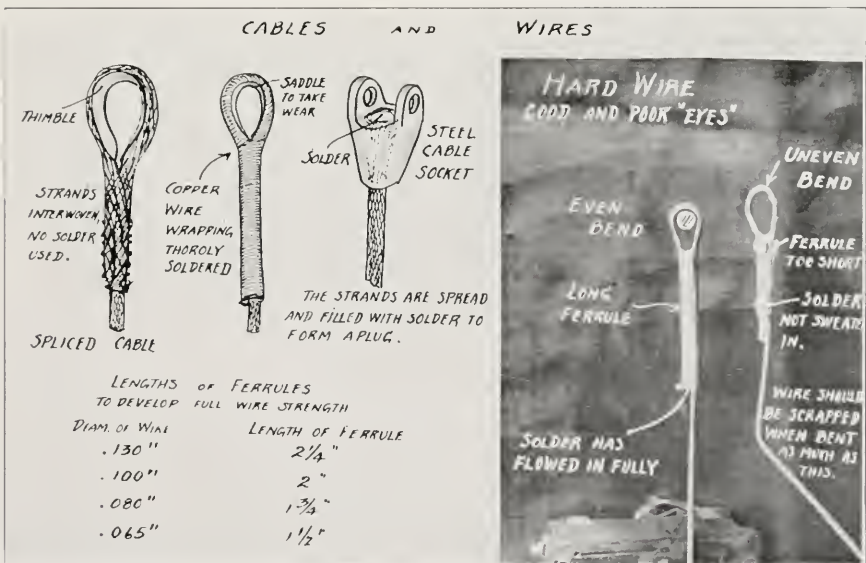 CABLES AND WIRES
THIMBLE
STRANDS
INTERWOVEN,
NO SOLDER
USED.
SPLICED CABLE
SADDLE
TO TAKE
WEAR
COPPER
WIRE
WRAPPING
THOROLY
SOLDERED
SOLDER
STEEL
CABLE
SOCKET
THE STRANDS ARE SPREAD
AND FILLED WITH SOLDER TO
FORM A PLUG.
LENGTHS OF FERRULES
TO DEVELOP FULL WIRE STRENGTH
DIAM. OF WIRE LENGTH OF FERRULE
.130" 2 1/4"
.100" 2"
.080" 1 3/4"
.065" 1 1/2"
HARD WIRE
GOOD AND POOR "EYES"
EVEN
BEND
LONG
FERRULE
SOLDER HAS
FLOWED IN FULLY
UNEVEN
BEND
FERRULE
TOO SHORT
SOLDER
NOT SWEATED
IN.
WIRE SHOULD
BE SCRAPPED
WHEN BENT
AS MUCH AS
THIS.